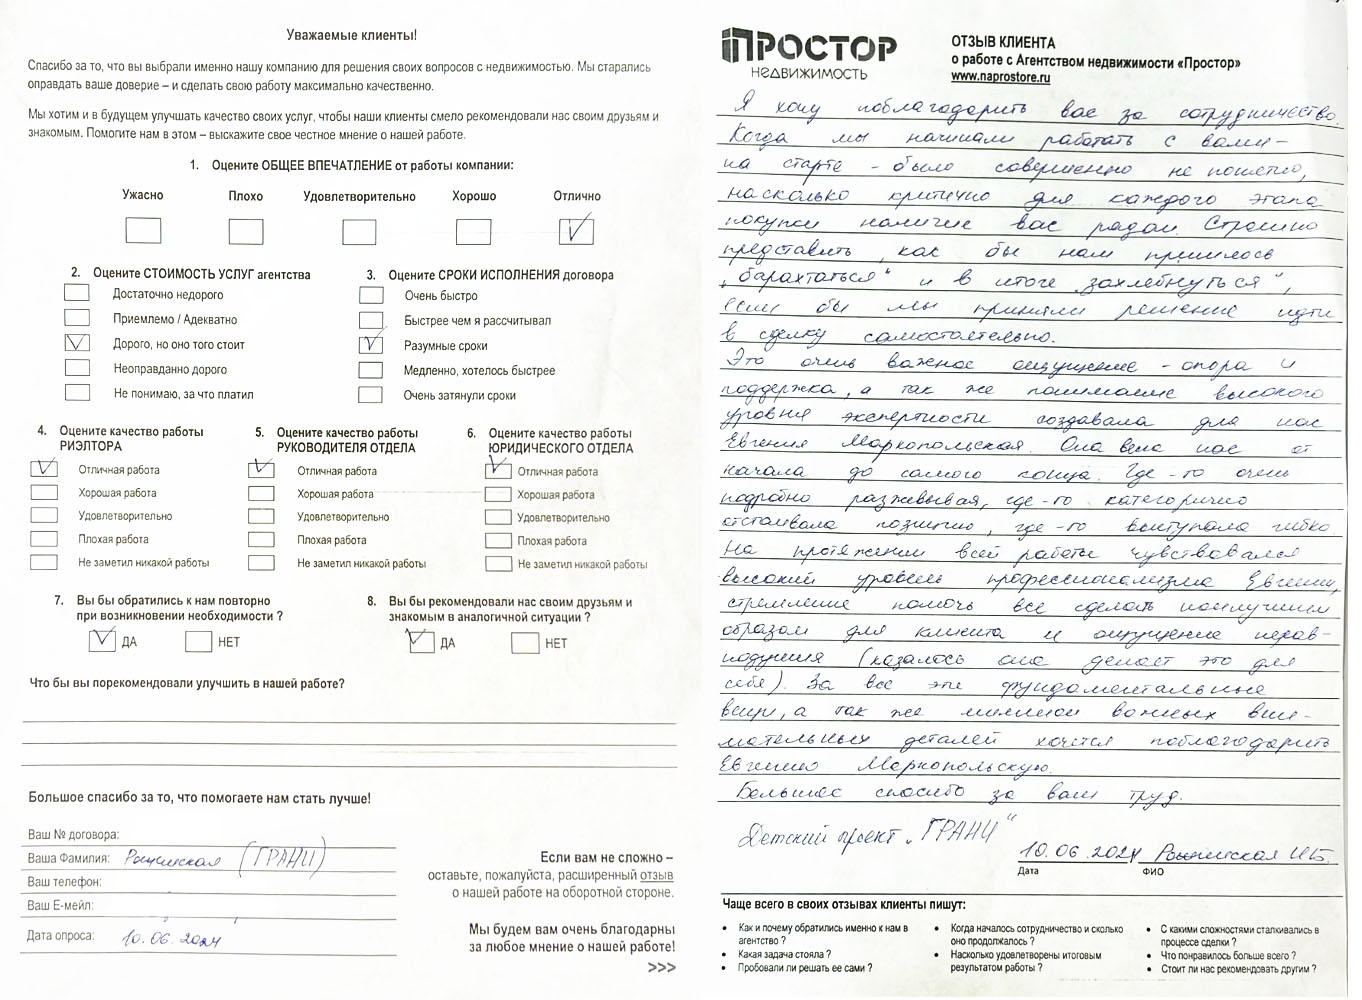 Уважаемые клиенты!
Спасибо за то, что вы выбрали именно нашу компанию для решения своих вопросов с недвижимостью. Мы старались
оправдать ваше доверие – и сделать свою работу максимально качественно.
Мы хотим и в будущем улучшать качество своих услуг, чтобы наши клиенты смело рекомендовали нас своим друзьям и
знакомым. Помогите нам в этом – выскажите свое честное мнение о нашей работе.
1. Оцените ОБЩЕЕ ВПЕЧАТЛЕНИЕ от работы компании:
Ужасно Плохо Удовлетворительно Хорошо Отлично
2. Оцените СТОИМОСТЬ УСЛУГ агентства
Достаточно недорого
Приемлемо / Адекватно
Дорого, но оно того стоит
Неоправданно дорого
Не понимаю, за что платил
3. Оцените СРОКИ ИСПОЛНЕНИЯ договора
Очень быстро
Быстрее чем я рассчитывал
Разумные сроки
Медленно, хотелось быстрее
Очень затянули сроки
4. Оцените качество работы
РИЭЛТОРА
Отличная работа
Хорошая работа
Удовлетворительно
Плохая работа
Не заметил никакой работы
5. Оцените качество работы
РУКОВОДИТЕЛЯ ОТДЕЛА
Отличная работа
Хорошая работа
Удовлетворительно
Плохая работа
Не заметил никакой работы
6. Оцените качество работы
ЮРИДИЧЕСКОГО ОТДЕЛА
Отличная работа
Хорошая работа
Удовлетворительно
Плохая работа
Не заметил никакой работы
7. Вы бы обратились к нам повторно
при возникновении необходимости ?
ДА НЕТ
8. Вы бы рекомендовали нас своим друзьям и
знакомым в аналогичной ситуации ?
ДА НЕТ
Что бы вы порекомендовали улучшить в нашей работе?
Большое спасибо за то, что помогаете нам стать лучше!
Ваш № договора:
Ваша Фамилия: (ГРАНИ)
Ваш телефон:
Ваш E-мейл:
Дата опроса: 10.06.2024
Если вам не сложно –
оставьте, пожалуйста, расширенный отзыв
о нашей работе на оборотной стороне.
Мы будем вам очень благодарны
за любое мнение о нашей работе!
>>>
ПРОСТОР
НЕДВИЖИМОСТЬ
ОТЗЫВ КЛИЕНТА
о работе с Агентством недвижимости «Простор»
www.naprostore.ru
Я хочу поблагодарить вас за сотрудничество.
Когда мы начинали работать с вами –
на старте – было совершенно не понятно,
насколько критично для каждого этапа
покупки наличие вас рядом. Страшно
представить, как бы нам пришлось
„барахтаться" и в итоге „захлебнуться",
если бы мы приняли решение идти
в сделку самостоятельно.
Это очень важное ощущение – опора и
поддержка, а так же понимание высокого
уровня экспертности создавала для нас
Евгения Маркопольская. Она вела нас от
начала до самого конца. Где-то очень
подробно разжевывая, где-то категорично
отстаивала позицию, где-то выступала гибко.
На протяжении всей работы чувствовался
высокий уровень профессионализма Евгении,
стремление помочь все сделать наилучшим
образом для клиента и ощущение нерав-
нодушия (казалось она делает это для
себя). За все эти фундаментальные
вещи, а так же миллион важных вни-
мательных деталей хочется поблагодарить
Евгению Маркопольскую.
Большое спасибо за ваш труд.
Детский проект „ГРАНИ"
10.06.2024
Дата ФИО
Чаще всего в своих отзывах клиенты пишут:
• Как и почему обратились именно к нам в
агентство ?
• Какая задача стояла ?
• Пробовали ли решать ее сами ?
• Когда началось сотрудничество и сколько
оно продолжалось ?
• Насколько удовлетворены итоговым
результатом работы ?
• С какими сложностями сталкивались в
процессе сделки ?
• Что понравилось больше всего ?
• Стоит ли нас рекомендовать другим ?